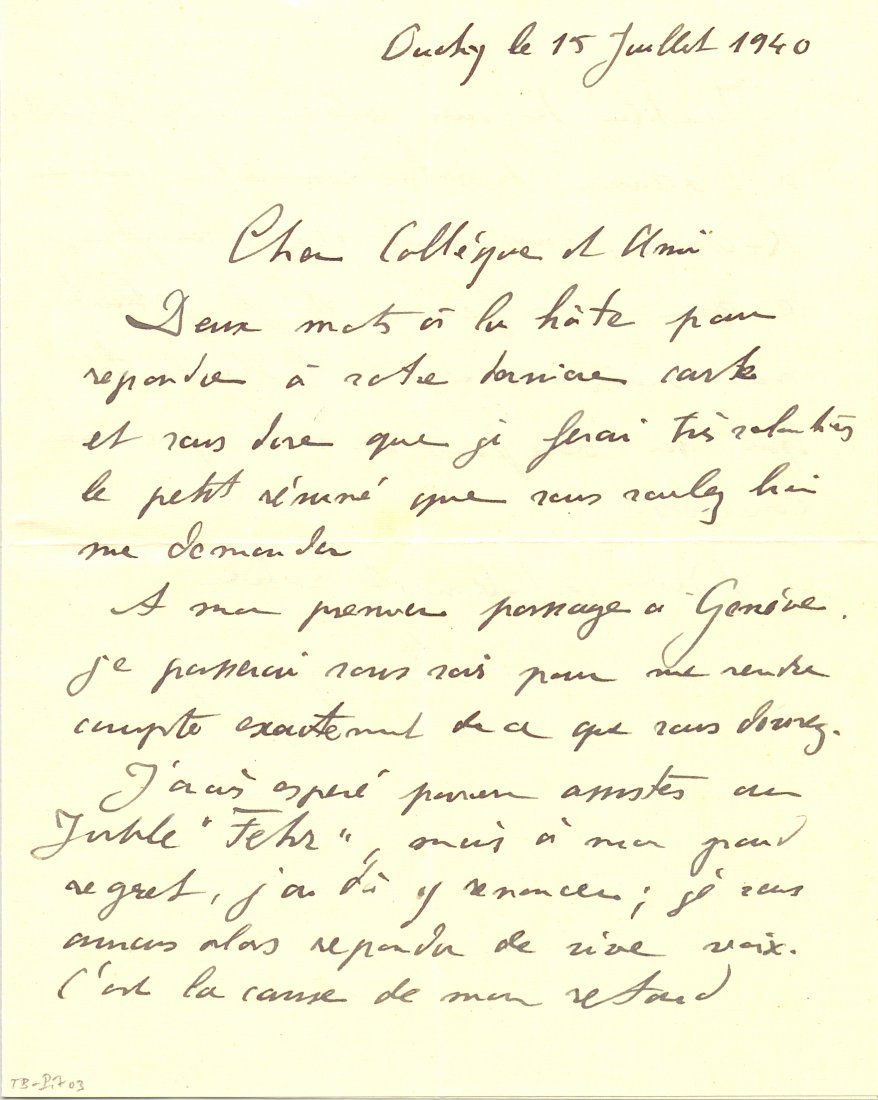 Ouchy le 15 Juillet 1940
Cher Collègue et Ami
Deux mots à la hâte pour
repondre à votre dernière carte
et vous dire que je ferai très volontiers
le petit résumé que vous voulez bien
me demander
A mon premier passage à Genève
je passerai vous voir pour me rendre
compte exactement de ce que vous désirez.
J'avais esperé pouvoir assister au
Jubilé "Fehr", mais à mon grand
regret, j'ai dû y renoncer; je vous
aurais alors repondu de vive voix.
C'est la cause de mon retard